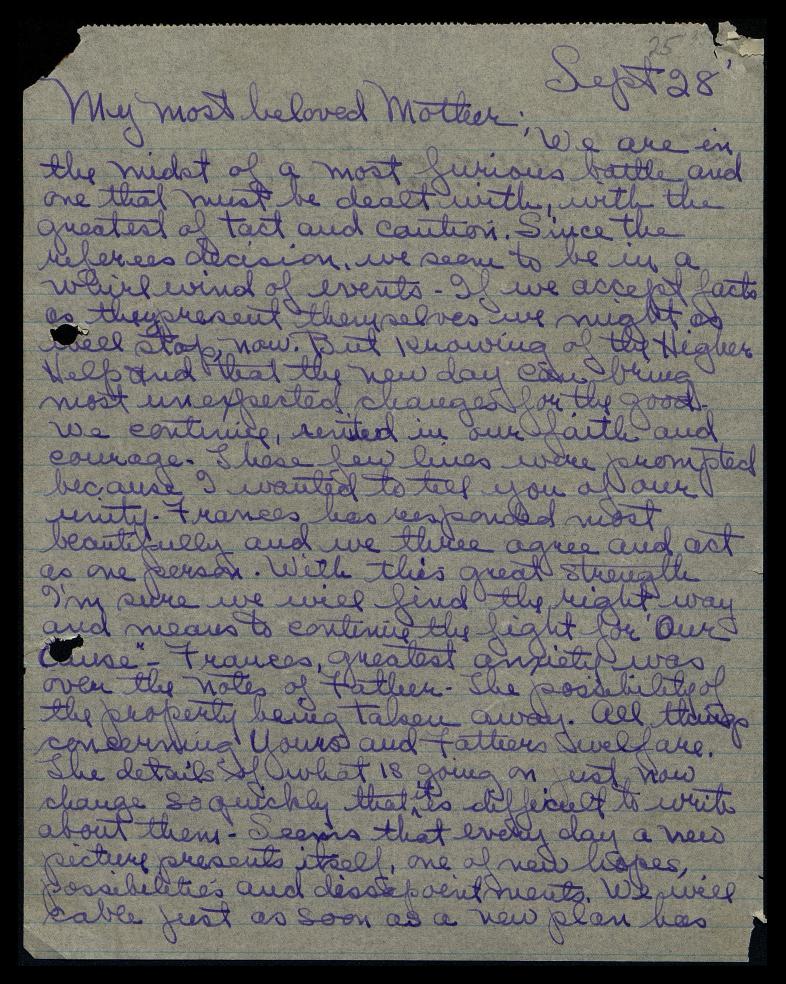 25
Sept 28'
My most beloved Mother;
We are in
the midst of a most furious battle and
one that must be dealt with, with the
greatest of tact and caution. Since the
referees decision, we seem to be in a
whirlwind of events - If we accept facts
as they present themselves we might as
well stop, now. But knowing of the Higher
Help and that the new day can bring
most unexpected changes for the good-
We continue, united in our faith and
courage. These few lines were prompted
because I wanted to tell you of our
unity. Frances has responded most
beautifully and we three agree and act
as one person. With this great strength
I'm sure we will find the right way
and means to continue the fight for "Our
Cause" - Frances, greatest anxiety was
over the notes of Father - The possibility of
the property being taken away. All things
concerning Yours and Fathers welfare.
The details of what is going on just now
change so quickly that its difficult to write
about them - Seems that every day a new
picture presents itself, one of new hopes,
possibilities and dissapointments. We will
cable just as soon as a new plan has